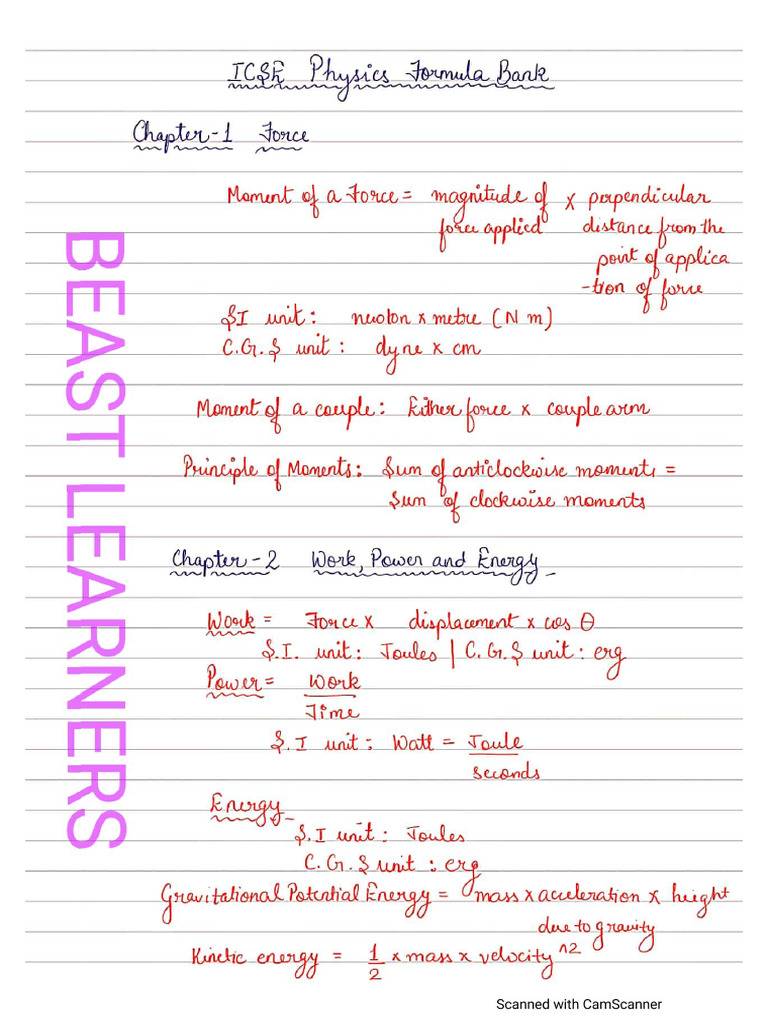 ICSE Physics Formula Bank
Chapter-1 Force
Moment of a Force = magnitude of x perpendicular
force applied distance from the
point of applica
-tion of force
SI unit: newton x metre (N m)
C.G.S unit: dyne x cm
Moment of a couple: Either force x couple arm
Principle of Moments: Sum of anticlockwise moments =
Sum of clockwise moments
Chapter-2 Work, Power and Energy
Work = Force x displacement x cos θ
S.I. unit: Joules | C.G.S unit: erg
Power = Work
Time
S.I unit: Watt = Joule
seconds
Energy
S.I unit: Joules
C.G.S unit: erg
Gravitational Potential Energy = mass x acceleration x height
due to gravity
Kinetic energy = 1/2 x mass x velocity^2
BEAST LEARNERS
Scanned with CamScanner